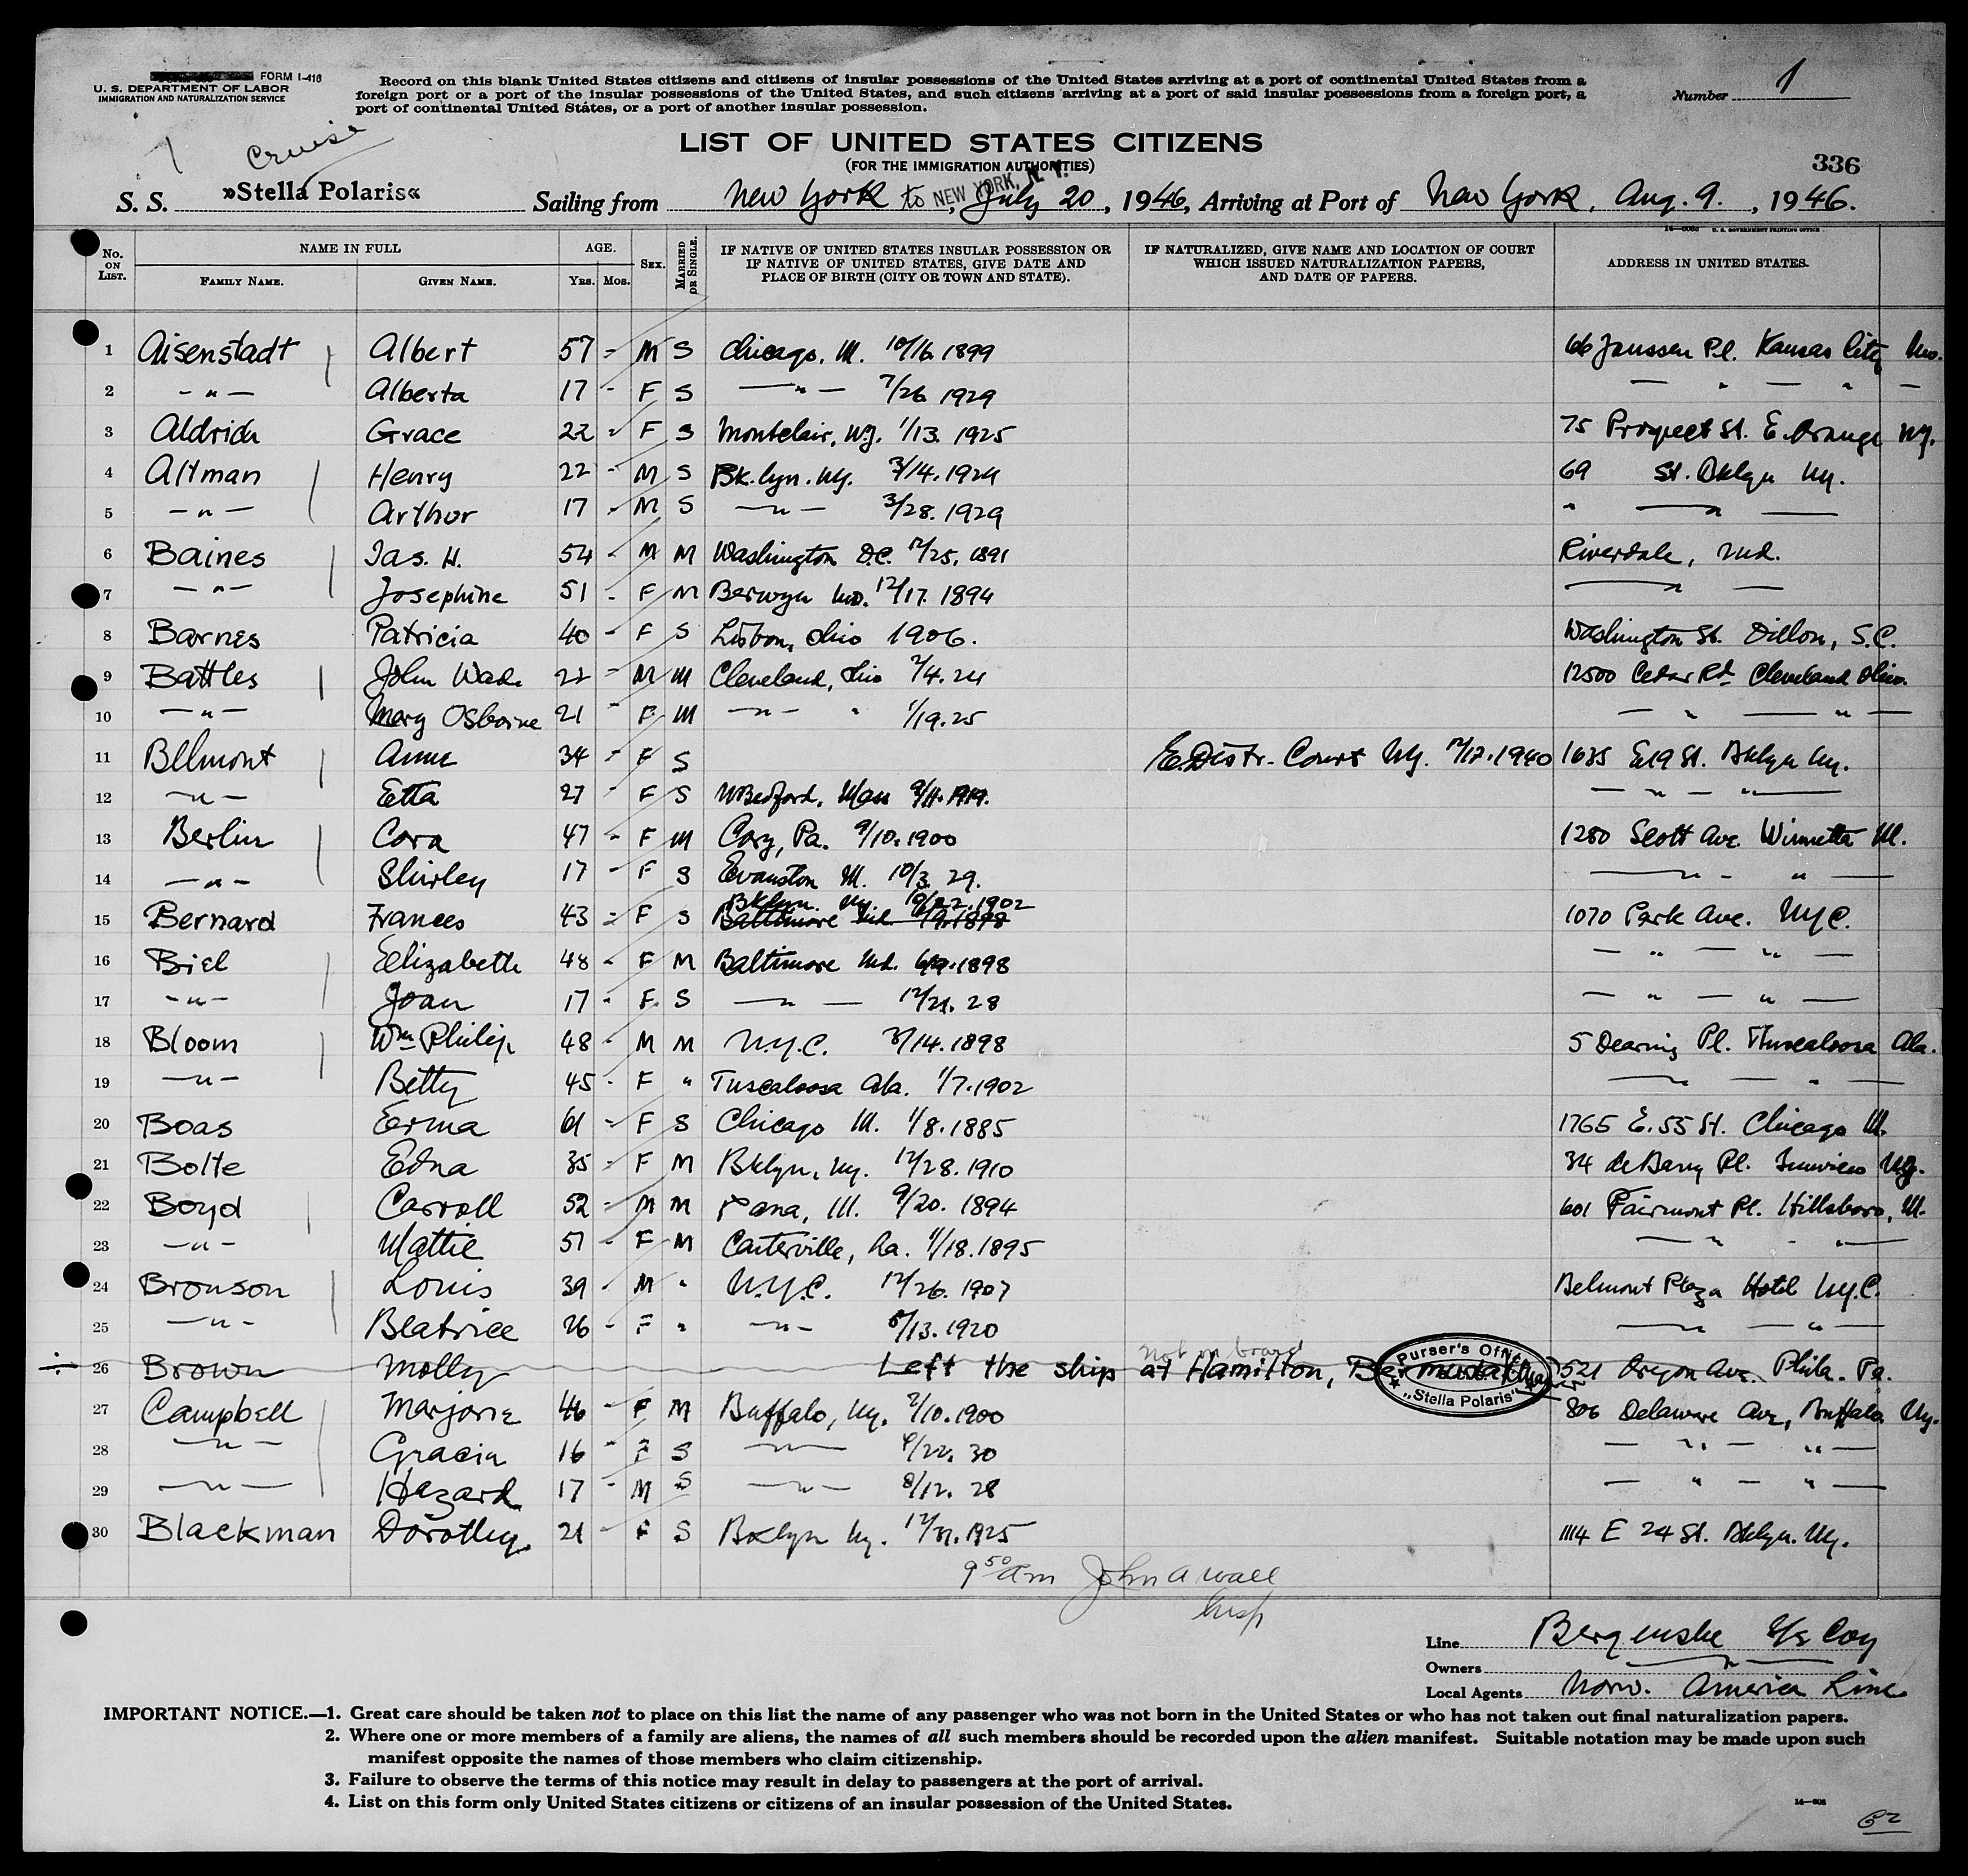 FORM I-416
U. S. DEPARTMENT OF LABOR
IMMIGRATION AND NATURALIZATION SERVICE
Record on this blank United States citizens and citizens of insular possessions of the United States arriving at a port of continental United States from a
foreign port or a port of the insular possessions of the United States, and such citizens arriving at a port of said insular possessions from a foreign port, a
port of continental United States, or a port of another insular possession.
Number 1
Cruise
LIST OF UNITED STATES CITIZENS
(FOR THE IMMIGRATION AUTHORITIES)
336
S. S. »Stella Polaris« Sailing from New York to NEW YORK, N. Y., July 20, 1946, Arriving at Port of New York, Aug. 9., 1946.
No. ON LIST. NAME IN FULL FAMILY NAME. GIVEN NAME. AGE. YRS. MOS. SEX. MARRIED OR SINGLE. IF NATIVE OF UNITED STATES INSULAR POSSESSION OR IF NATIVE OF UNITED STATES, GIVE DATE AND PLACE OF BIRTH (CITY OR TOWN AND STATE). IF NATURALIZED, GIVE NAME AND LOCATION OF COURT WHICH ISSUED NATURALIZATION PAPERS, AND DATE OF PAPERS. ADDRESS IN UNITED STATES.
1 Aisenstadt Albert 57 - M S Chicago, Ill. 10/16 1899 66 Janssen Pl. Kansas City Mo.
2 - " - Alberta 17 - F S - " - 7/26 1929 - " - " -
3 Aldrich Grace 22 - F S Montclair, N.J. 1/13. 1925 75 Prospect St. E. Orange N.J.
4 Altman Henry 22 - M S Bk.lyn. N.Y. 3/14. 1924 69 St. Bklyn N.Y.
5 - " - Arthur 17 - M S - " - 3/28. 1929 " - " -
6 Baines Jas. H. 54 - M M Washington D.C. 12/25, 1891 Riverdale, Md.
7 - " - Josephine 51 - F M Berwyn Md. 12/17. 1894 - " -
8 Barnes Patricia 40 - F S Lisbon, Ohio 1906. Washington St. Dillon, S.C.
9 Battles John Wade 22 - M M Cleveland, Ohio 2/4. 24 12500 Cedar Rd. Cleveland Ohio
10 - " - Mary Osborne 21 - F M - " - " 1/19. 25 - " - " -
11 Belmont Anne 34 - F S E. Distr. Court N.Y. 12/12. 1940 1635 E 19 St. Bklyn N.Y.
12 - " - Etta 27 - F S N Bedford, Mass 9/11. 1919. - " - " -
13 Berlin Cora 47 - F M Cory, Pa. 9/10. 1900 1280 Scott Ave. Winnetka Ill.
14 - " - Shirley 17 - F S Evanston Ill. 10/3. 29. - " - " -
Bklyn. N.Y. 10/22. 1902
15 Bernard Frances 43 - F S Baltimore Md. 6/9. 1898 1070 Park Ave. N.Y.C.
16 Biel Elizabeth 48 - F M Baltimore Md. 6/9. 1898 - " - " -
17 - " - Joan 17 - F. S - " - 12/21. 28 - " - " -
18 Bloom Wm Philip 48 - M M N.Y.C. 3/14. 1898 5 Dearing Pl. Tuscaloosa Ala.
19 - " - Betty 45 - F " Tuscaloosa Ala. 1/7. 1902 - " -
20 Boas Erma 61 - F S Chicago Ill. 1/8. 1885 1765 E. 55 St. Chicago Ill.
21 Bolte Edna 35 - F M Bklyn, N.Y. 12/28. 1910 34 de Bary Pl. N.J.
22 Boyd Carroll 52 - M M Pana, Ill. 9/20. 1894 601 Fairmont Pl. Hillsboro, Ill.
23 - " - Mattie 51 - F M Carterville, Ga. 1/18. 1895 - " - " -
24 Bronson Louis 39 - M " N.Y.C. 12/26. 1907 Belmont Plaza Hotel N.Y.C.
25 - " - Beatrice 26 - F " - " - 5/13. 1920 - " -
not on board
26 Brown Molly Left the ship at Hamilton, Bermuda 521 Oregon Ave. Phila. Pa.
Purser's Office „Stella Polaris"
27 Campbell Marjorie 46 - F M Buffalo, N.Y. 2/10. 1900 806 Delaware Ave, Buffalo N.Y.
28 - " - Gracia 16 - F S - " - 4/22. 30 - " - " -
29 - " - Hazard 17 - M S - " - 8/12. 28 - " - " -
30 Blackman Dorothy. 21 - F S Bklyn N.Y. 12/31. 1925 1114 E 24 St. Bklyn. N.Y.
9 50 am John A Wall
Insp
Line Bergenske S/S Coy
Owners - " -
Local Agents Norw. America Line
IMPORTANT NOTICE.—1. Great care should be taken not to place on this list the name of any passenger who was not born in the United States or who has not taken out final naturalization papers.
2. Where one or more members of a family are aliens, the names of all such members should be recorded upon the alien manifest. Suitable notation may be made upon such
manifest opposite the names of those members who claim citizenship.
3. Failure to observe the terms of this notice may result in delay to passengers at the port of arrival.
4. List on this form only United States citizens or citizens of an insular possession of the United States.